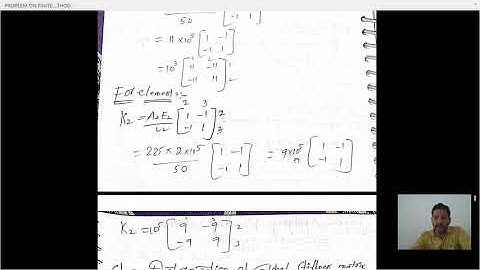 PROBLEM ON FINITE...THOD
50
= 11×10⁵ [1 -1
-1 1]
= 10⁵ [11 -11
-11 11] 1 2
For element 2:-
2 3
K₂ = A₂E₂/L₂ [1 -1
-1 1] 2 3
= 225 × 2×10⁵ / 50 [1 -1
-1 1] = 9×10⁵ [1 -1
-1 1]
K₂ = 10⁵ [9 -9
-9 9] 2 3
Determination of Global Stiffness matrix